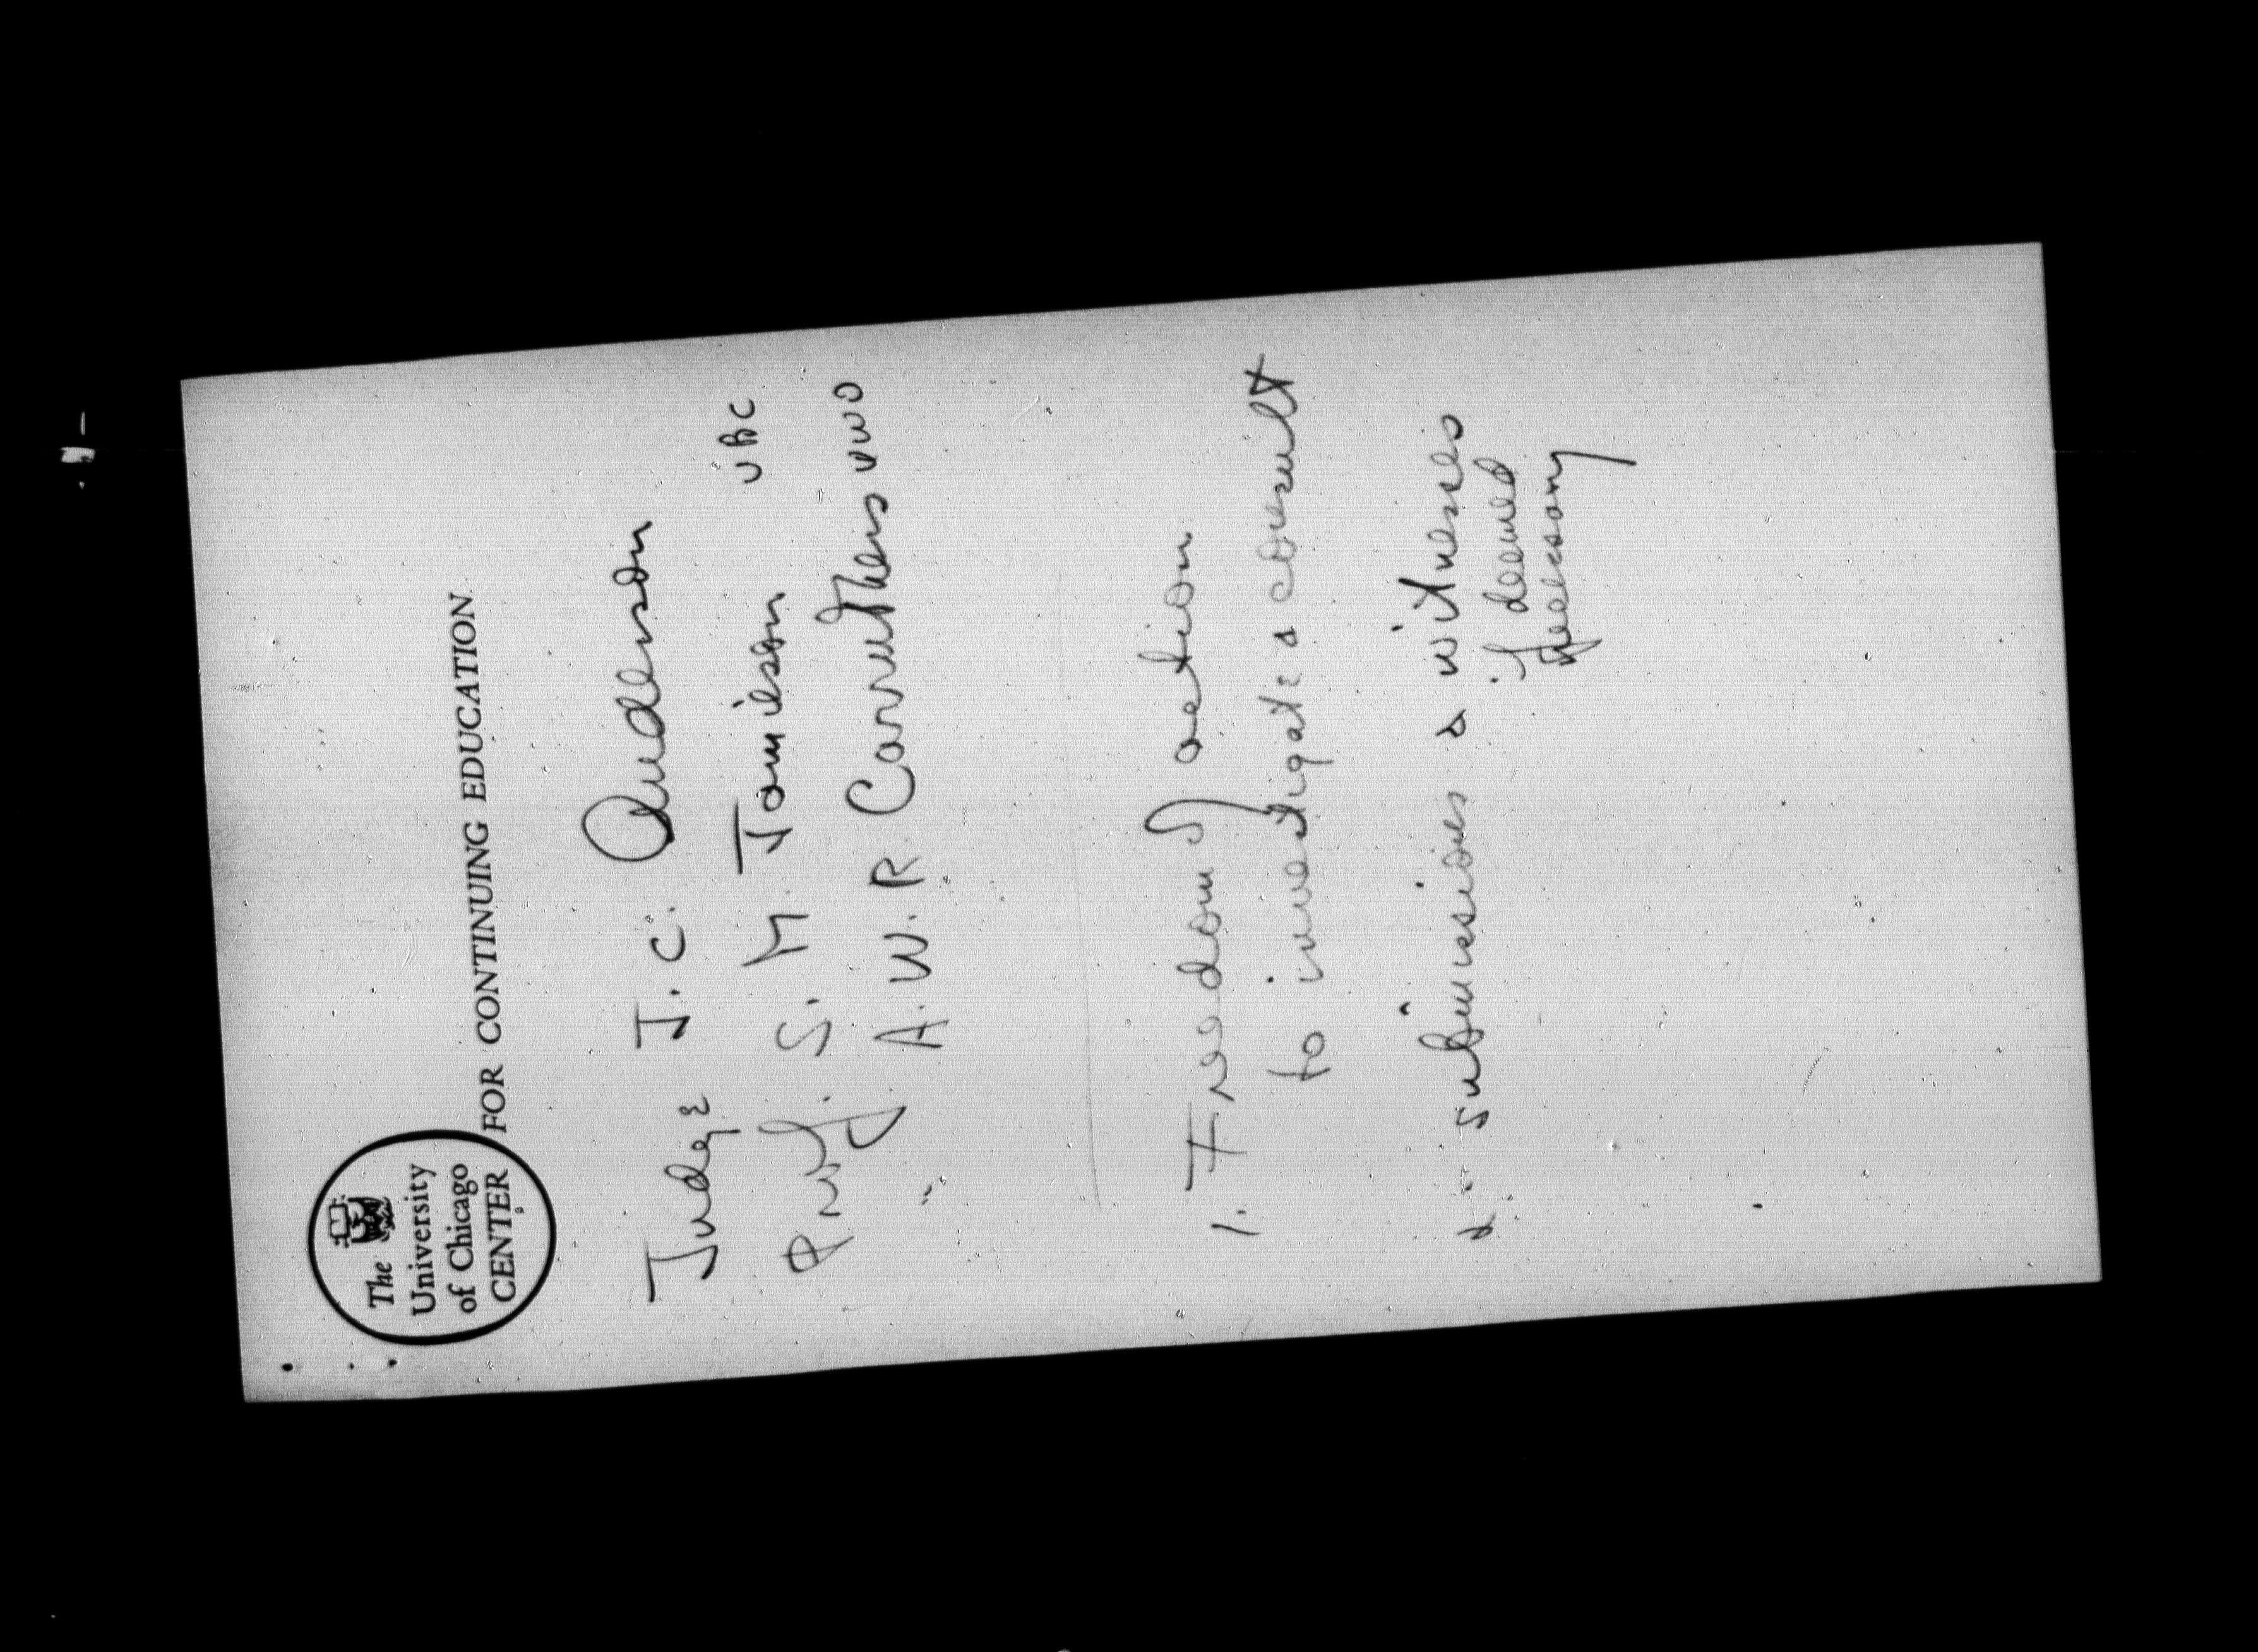 The
University
of Chicago
CENTER
FOR CONTINUING EDUCATION
Judge J. C. Anderson
Prof. S. M. Jamieson UBC
" A. W. R Carrothers UWO
1. Freedom of action
to investigate & consult
2. submissions & witnesses
if deemed
necessary